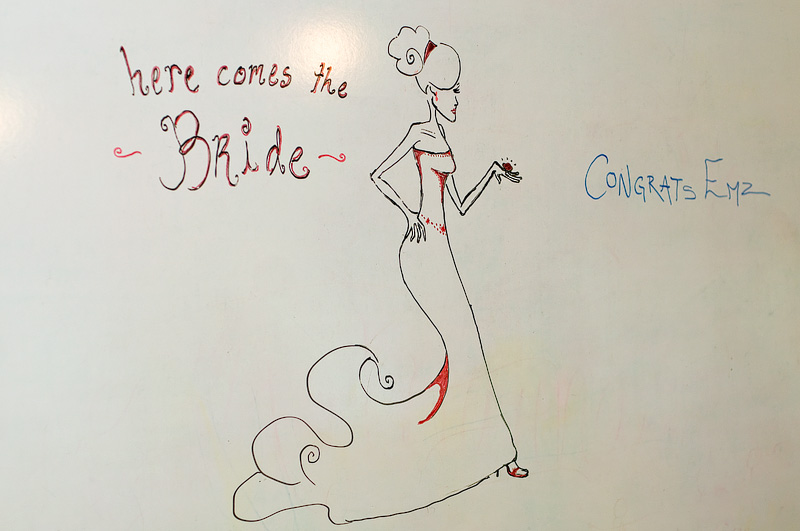 here comes the
~ Bride ~
Congrats Emz